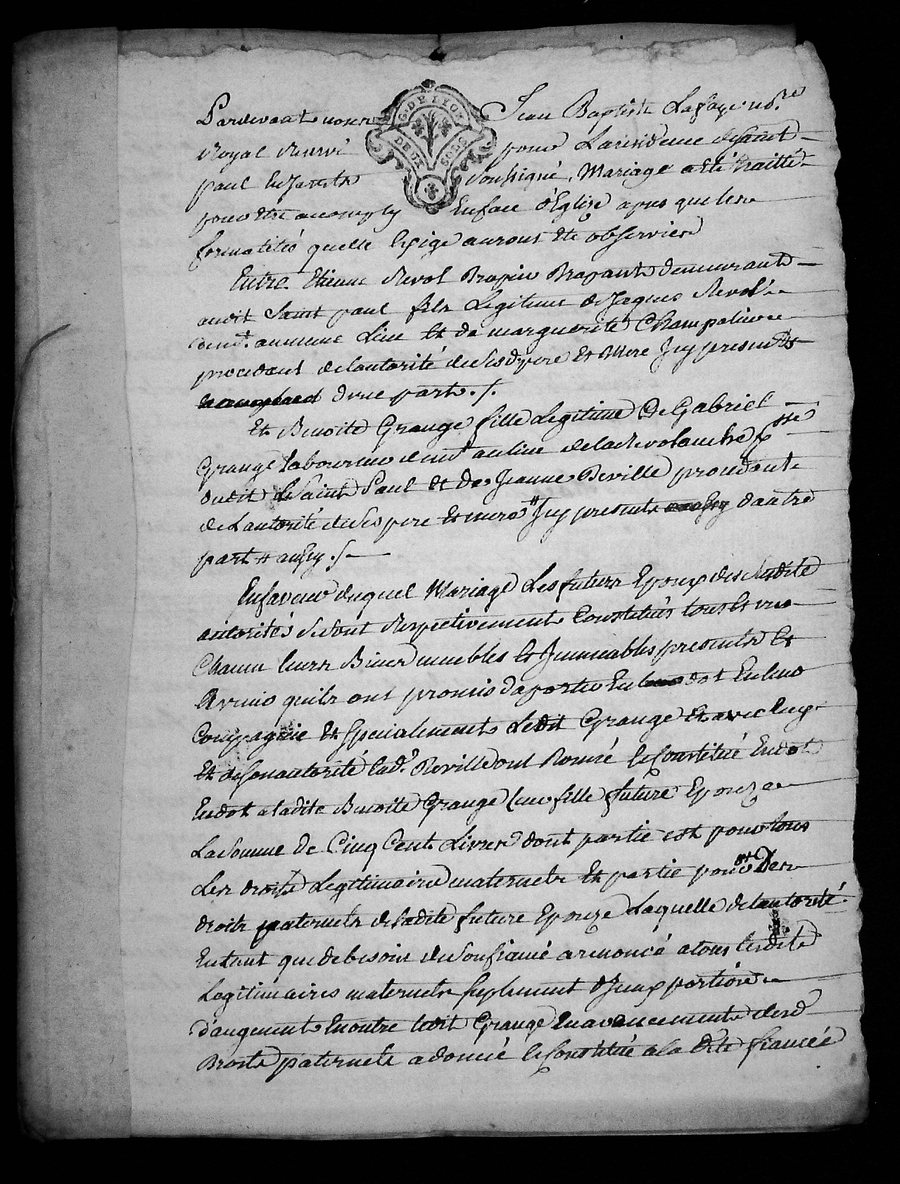 Pardevant nous Jean Baptiste Lafaye no.re
G. DE LYON
DEUX SOLS
Royal pour La residence de Saint
paul en Jarest Soussigné, Mariage a eté traitté
pour etre acomply En face d'Eglise apres que les
formalités quelle Exige auront eté observées
Entre Etienne Revol demeurant
audit Saint paul fils Legitime de Jaques Revol
dem.t au meme Lieu Et de marguerite Champalier
procedant de lautorité de Sesd. pere Et Mere Icy presents
d'une part ./.
Et Benoite Grange fille Legitime De Gabriel
Grange laboureur dem.t au lieu de la p.sse
dudit Saint Paul Et de Jeanne Reville procedant
de Lautorité de Ses pere Et mere # Icy presents d'autre
part # aussy ./.
En faveur duquel Mariage Les futurs Epoux desdites
autorités Se Sont Respectivement Constitués tous Et uns
Chacun leurs Biens meubles Et Immeubles presents Et
Avenir quils ont promis d'aporter En dot En leur
Compagnie Et specialement Ledit Grange Et avec luy
Et de Son autorité lad. Reville ont Donné Et Constitué En dot
En dot a ladite Benoite Grange leur fille future Epouze
La Somme de Cinq Cent Livres dont partie est pour tous
Les droits Legitimaires maternels Et partie pour Des
droits paternels de ladite future Epouze Laquelle de lautorité
En tant que de besoin de Son fiancé a renoncé a tous lesdits
Legitimaires maternels Suplement d'Iceux portion
d'augment En outre ledit Grange En avancement desd
Droits paternels a donné Et Constitué a la dite fiancée